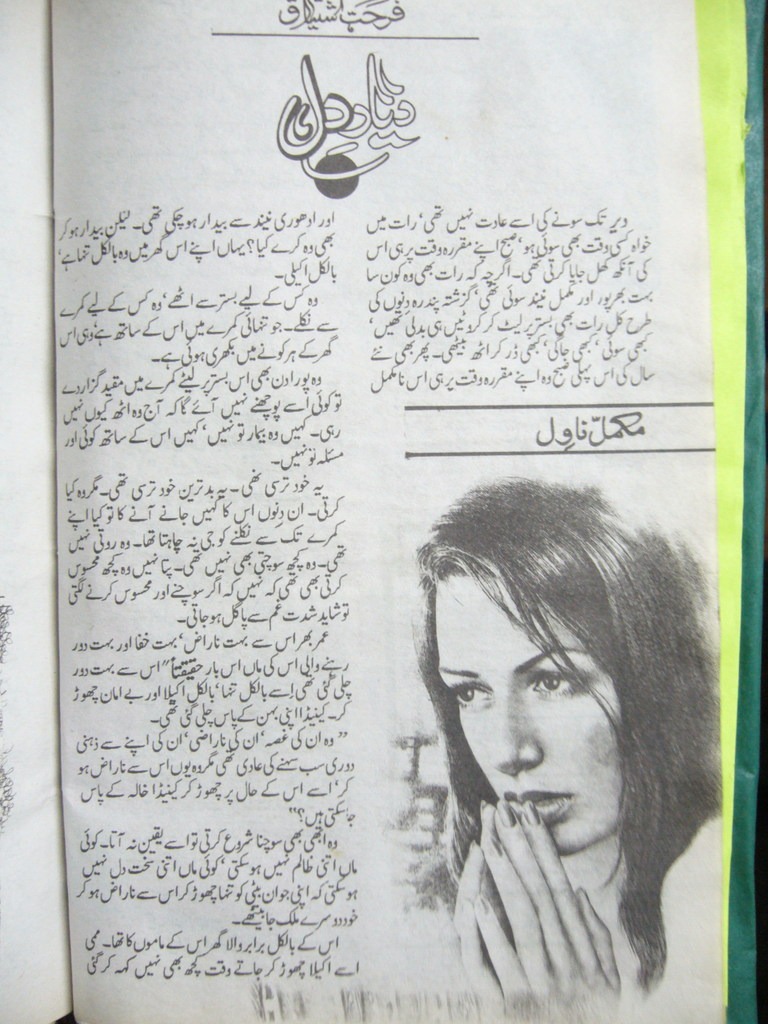 فرحت اشتیاق
دیارِ دل
دیر تک سونے کی اسے عادت نہیں تھی‘ رات میں
خواہ کسی وقت بھی سوئی ہو‘ صبح اپنے مقررہ وقت پر ہی اس
کی آنکھ کھل جایا کرتی تھی۔ اگرچہ کہ رات بھی وہ کون سا
بہت بھرپور اور مکمل نیند سوئی تھی‘ گزشتہ پندرہ دنوں کی
طرح کل رات بھی بستر پر لیٹ کر کروٹیں ہی بدلی تھیں‘
کبھی سوئی‘ کبھی جاگی‘ کبھی ڈر کر اٹھ بیٹھی۔ پھر بھی نئے
سال کی اس پہلی صبح وہ اپنے مقررہ وقت پر ہی اس نامکمل
مکمل ناول
اور ادھوری نیند سے بیدار ہو چکی تھی۔ لیکن بیدار ہو کر
بھی وہ کرے کیا؟ یہاں اپنے اس گھر میں وہ بالکل تنہا ہے‘
بالکل اکیلی۔
وہ کس کے لیے بستر سے اٹھے‘ وہ کس کے لیے کمرے
سے نکلے۔ جو تنہائی کمرے میں اس کے ساتھ ہے‘ وہی اس
گھر کے ہر کونے میں بکھری ہوئی ہے۔
وہ پورا دن بھی اس بستر پر لیٹے کمرے میں مقید گزار دے
تو کوئی اسے پوچھنے نہیں آئے گا کہ آج وہ اٹھ کیوں نہیں
رہی۔ کہیں وہ بیمار تو نہیں‘ کہیں اس کے ساتھ کوئی اور
مسئلہ تو نہیں۔
یہ خود ترسی تھی۔ یہ بدترین خود ترسی تھی۔ مگر وہ کیا
کرتی۔ ان دنوں اس کا کہیں جانے آنے کا تو کیا اپنے
کمرے تک سے نکلنے کو جی نہ چاہتا تھا۔ وہ روتی نہیں
تھی۔ وہ کچھ سوچتی بھی نہیں تھی۔ پتا نہیں وہ کچھ محسوس
کرتی بھی تھی کہ نہیں کہ اگر سوچنے اور محسوس کرنے لگتی
تو شاید شدت غم سے پاگل ہو جاتی۔
عمر بھر اس سے بہت ناراض‘ بہت خفا اور بہت دور
رہنے والی اس کی ماں اس بار حقیقتاً“ اس سے بہت دور
چلی گئی تھی اسے بالکل تنہا‘ بالکل اکیلا اور بے امان چھوڑ
کر۔ کینیڈا اپنی بہن کے پاس چلی گئی تھی۔
”وہ ان کی غصہ‘ ان کی ناراضی‘ ان کی اپنے سے ذہنی
دوری سب سہنے کی عادی تھی مگر وہ یوں اس سے ناراض ہو
کر‘ اسے اس کے حال پر چھوڑ کر کینیڈا خالہ کے پاس
جا سکتی ہیں؟“
وہ ابھی بھی سوچنا شروع کرتی تو اسے یقین نہ آتا۔ کوئی
ماں اتنی ظالم نہیں ہو سکتی‘ کوئی ماں اتنی سخت دل نہیں
ہو سکتی کہ اپنی جوان بیٹی کو تنہا چھوڑ کر اس سے ناراض ہو کر
خود دوسرے ملک جا بیٹھے۔
اس کے بالکل برابر والا گھر اس کے ماموں کا تھا۔ ممی
اسے اکیلا چھوڑ کر جاتے وقت کچھ بھی نہیں کہہ کر گئی